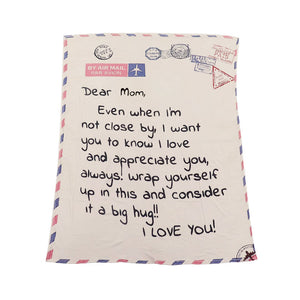 BY AIR MAIL
PAR AVION
Dear Mom,
Even when i'm
not close by, I want
you to know I love
and appreciate you,
always! wrap yourself
up in this and consider
it a big hug!!
I LOVE YOU!